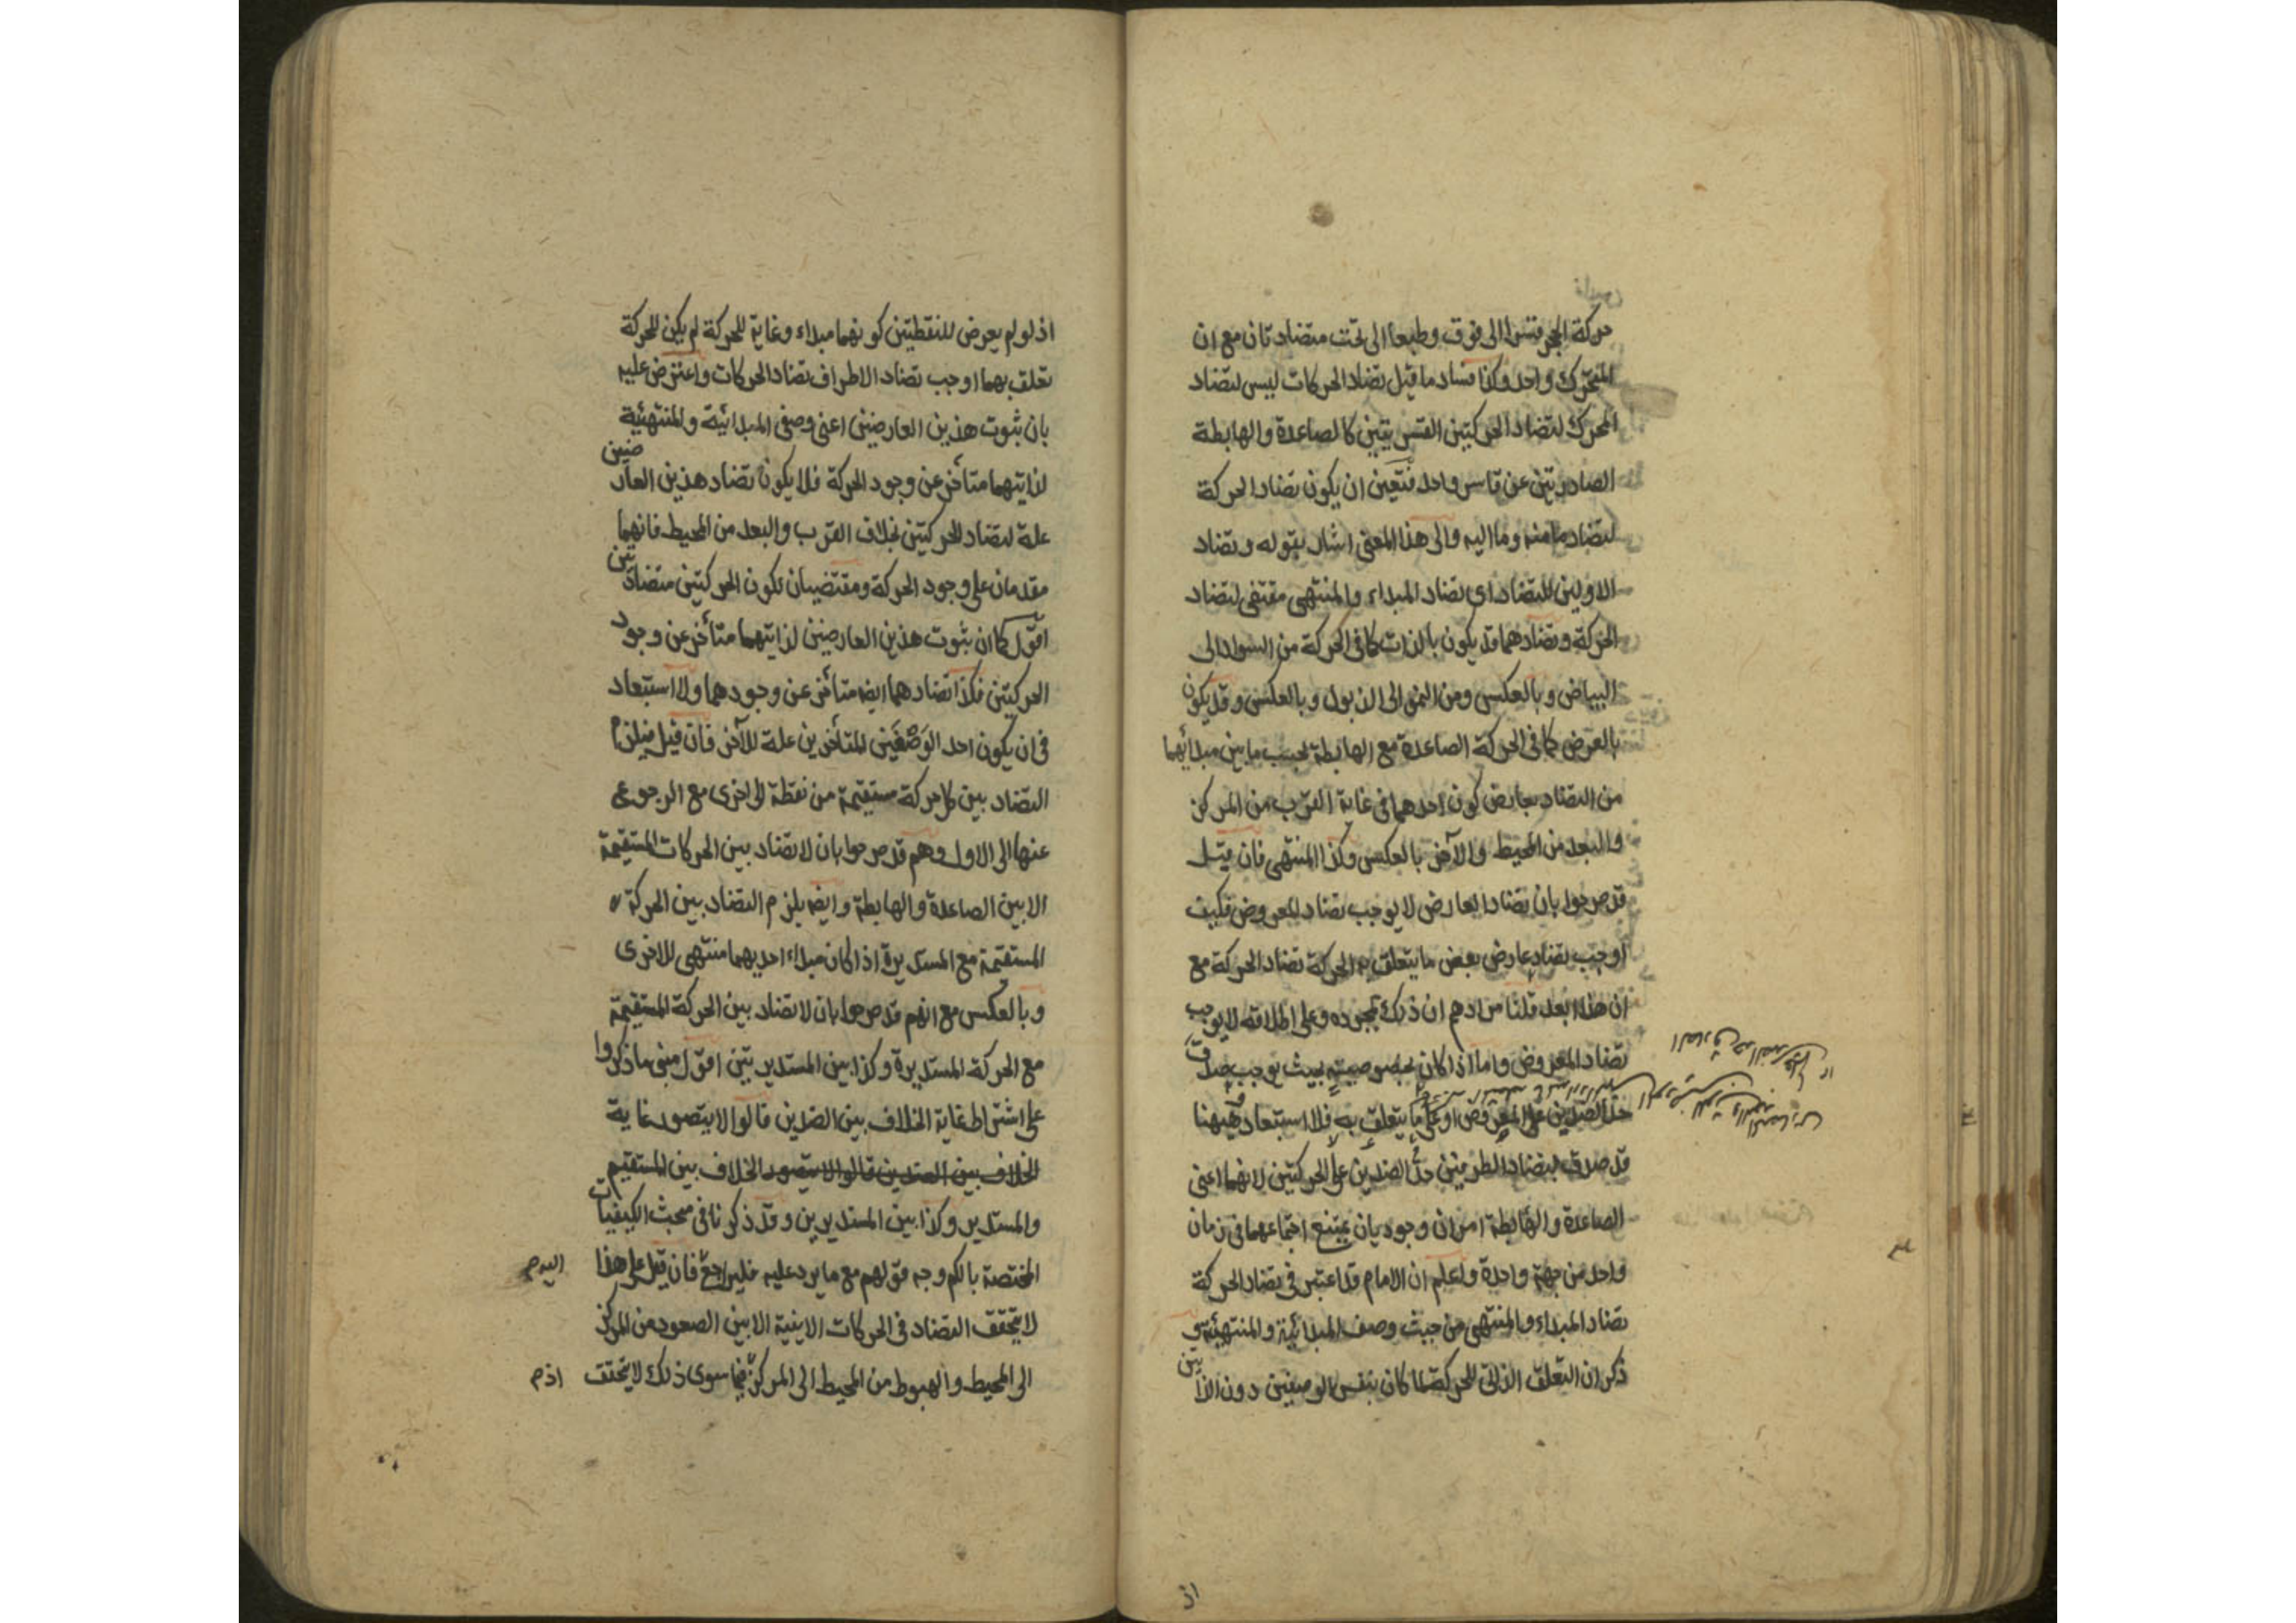 حركة الحجر قسرا الى فوق وطبعا الى تحت متضادتان مع ان
المتحرك واحد وكذا فساد ما قيل تضاد الحركات ليس لتضاد
المحرك لتضاد الحركتين القسريتين كالصاعدة والهابطة
الصادرتين عن قاسر واحد فتعين ان يكون تضاد الحركة
لتضاد ما منه وما اليه والى هذا المعنى اشار بقوله وتضاد
الاولين للتضاد اى تضاد المبداء والمنتهى مقتضى لتضاد
الحركة وتضادهما قد يكون بالذات كما فى الحركة من السواد الى
البياض وبالعكس ومن النمو الى الذبول وبالعكس وقد يكون
بالعرض كما فى الحركة الصاعدة مع الهابطة بحسب ما بين مبدائهما
من التضاد بعارض كون احدهما فى غاية القرب من المركز
والبعد من المحيط والآخر بالعكس وكذا المنتهى فان قيل
قد صرحوا بان تضاد العارض لا يوجب تضاد المعروض فكيف
اوجب تضاد عارض بعض ما يتعلق به الحركة تضاد الحركة مع
ان هذا ابعد قلنا مرادهم ان ذلك بمجرده وعلى اطلاقه لا يوجب
تضاد المعروض واما اذا كان بخصوصيته بحيث يوجب صدق
حد الضدين على المعروض او على ما يتعلق به فلا استبعاد فيه وههنا
قد صدق بتضاد الطرفين حد الضدين على الحركتين لانهما اعنى
الصاعدة والهابطة امران وجوديان يمتنع اجتماعهما فى زمان
واحد من جهة واحدة واعلم ان الامام قد اعتبر فى تضاد الحركة
تضاد المبداء والمنتهى من حيث وصف المبدائية والمنتهئية
ذكر ان التعلق الذاتى للحركة لما كان بنفس الوصفين دون الذاتين
اذ لو لم يعرض للنقطتين كونهما مبداء وغاية للحركة لم يكن للحركة
تعلق بهما اوجب تضاد الاطراف تضاد الحركات واعترض عليه
بان ثبوت هذين العارضين اعنى وصفى المبدائية والمنتهئية
لذاتيهما متأخر عن وجود الحركة فلا يكون تضاد هذين العارضين
علة لتضاد الحركتين بخلاف القرب والبعد من المحيط فانهما
مقدمان على وجود الحركة ومقتضيان لكون الحركتين متضادتين
اقول كما ان ثبوت هذين العارضين لذاتيهما متأخر عن وجود
الحركتين فكذا تضادهما ايضه متأخر عن وجودهما ولا استبعاد
فى ان يكون احد الوصفين المتأخرين علة للآخر فان قيل فيلزم
التضاد بين كل حركة مستقيمة من نقطة الى اخرى مع الرجوع
عنها الى الاول وهم قد صرحوا بان لا تضاد بين الحركات المستقيمة
الا بين الصاعدة والهابطة وايضه يلزم التضاد بين الحركة
المستقيمة مع المستديرة اذا كان مبداء احديهما منتهى للاخرى
وبالعكس مع انهم قد صرحوا بان لا تضاد بين الحركة المستقيمة
مع الحركة المستديرة وكذا بين المستديرتين اقول مبنى ما ذكروا
على اشتراط غاية الخلاف بين الضدين قالوا لا يتصور غاية
الخلاف بين الضدين قالوا لا يتصور الخلاف بين المستقيم
والمستدير وكذا بين المستديرين وقد ذكرنا فى مبحث الكيفيات
المختصة بالكم وجه قولهم مع ما يرد عليه فليراجع فان قيل على هذا
لا يتحقق التضاد فى الحركات الاينية الا بين الصعود من المركز
الى المحيط والهبوط من المحيط الى المركز فيما سوى ذلك لا يتحقق
اذ م